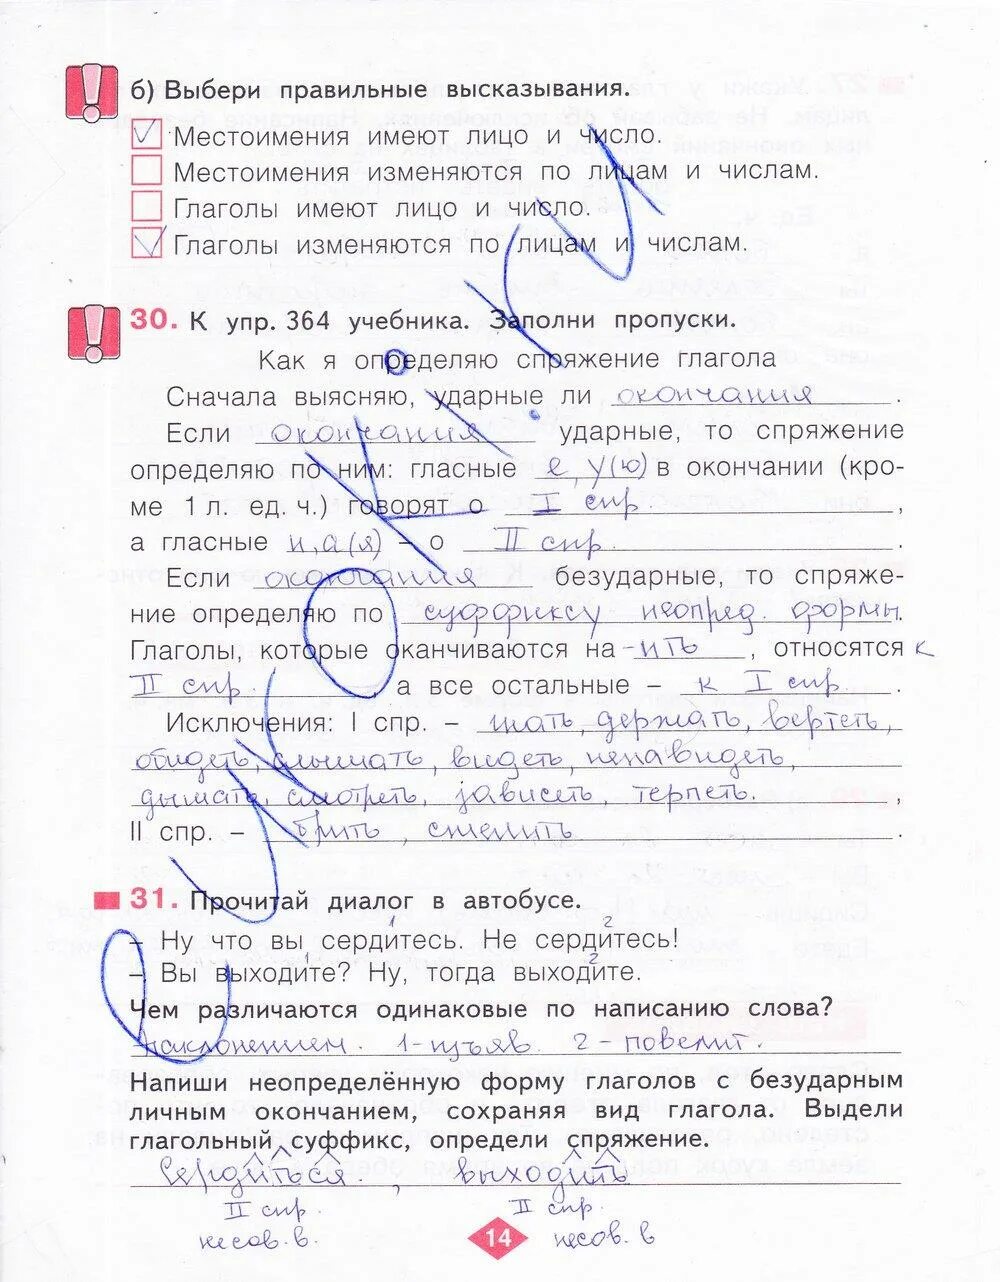 б) Выбери правильные высказывания.
Местоимения имеют лицо и число.
Местоимения изменяются по лицам и числам.
Глаголы имеют лицо и число.
Глаголы изменяются по лицам и числам.
30. К упр. 364 учебника. Заполни пропуски.
Как я определяю спряжение глагола
Сначала выясняю, ударные ли окончания.
Если окончания ударные, то спряжение
определяю по ним: гласные е, у(ю) в окончании (кро-
ме 1 л. ед. ч.) говорят о I спр.,
а гласные и, а(я) – о II спр.
Если окончания безударные, то спряже-
ние определяю по суффиксу неопред. формы.
Глаголы, которые оканчиваются на -ить, относятся к
II спр., а все остальные – к I спр.
Исключения: I спр. – гнать, держать, вертеть,
обидеть, слышать, видеть, ненавидеть,
дышать, смотреть, зависеть, терпеть.,
II спр. – брить, стелить.
31. Прочитай диалог в автобусе.
– Ну что вы сердитесь. Не сердитесь!
1 2
– Вы выходите? Ну, тогда выходите.
1 2
Чем различаются одинаковые по написанию слова?
наклонением. 1-изъяв. 2-повелит.
Напиши неопределённую форму глаголов с безударным
личным окончанием, сохраняя вид глагола. Выдели
глагольный суффикс, определи спряжение.
Сердиться, выходить
II спр. II спр.
несов. в. несов. в
14